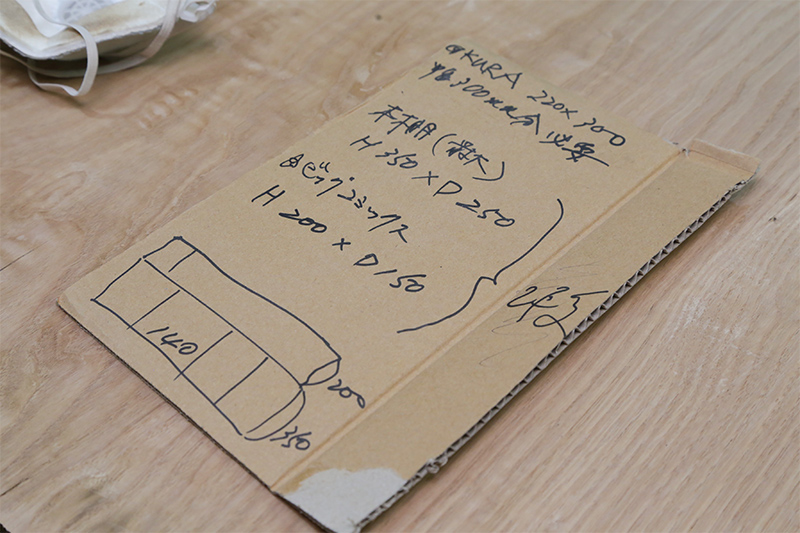 OKURA 220×300
本棚(最大)
H 350×D 250
ビッグコミックス
H 200×D 150
140
200
350